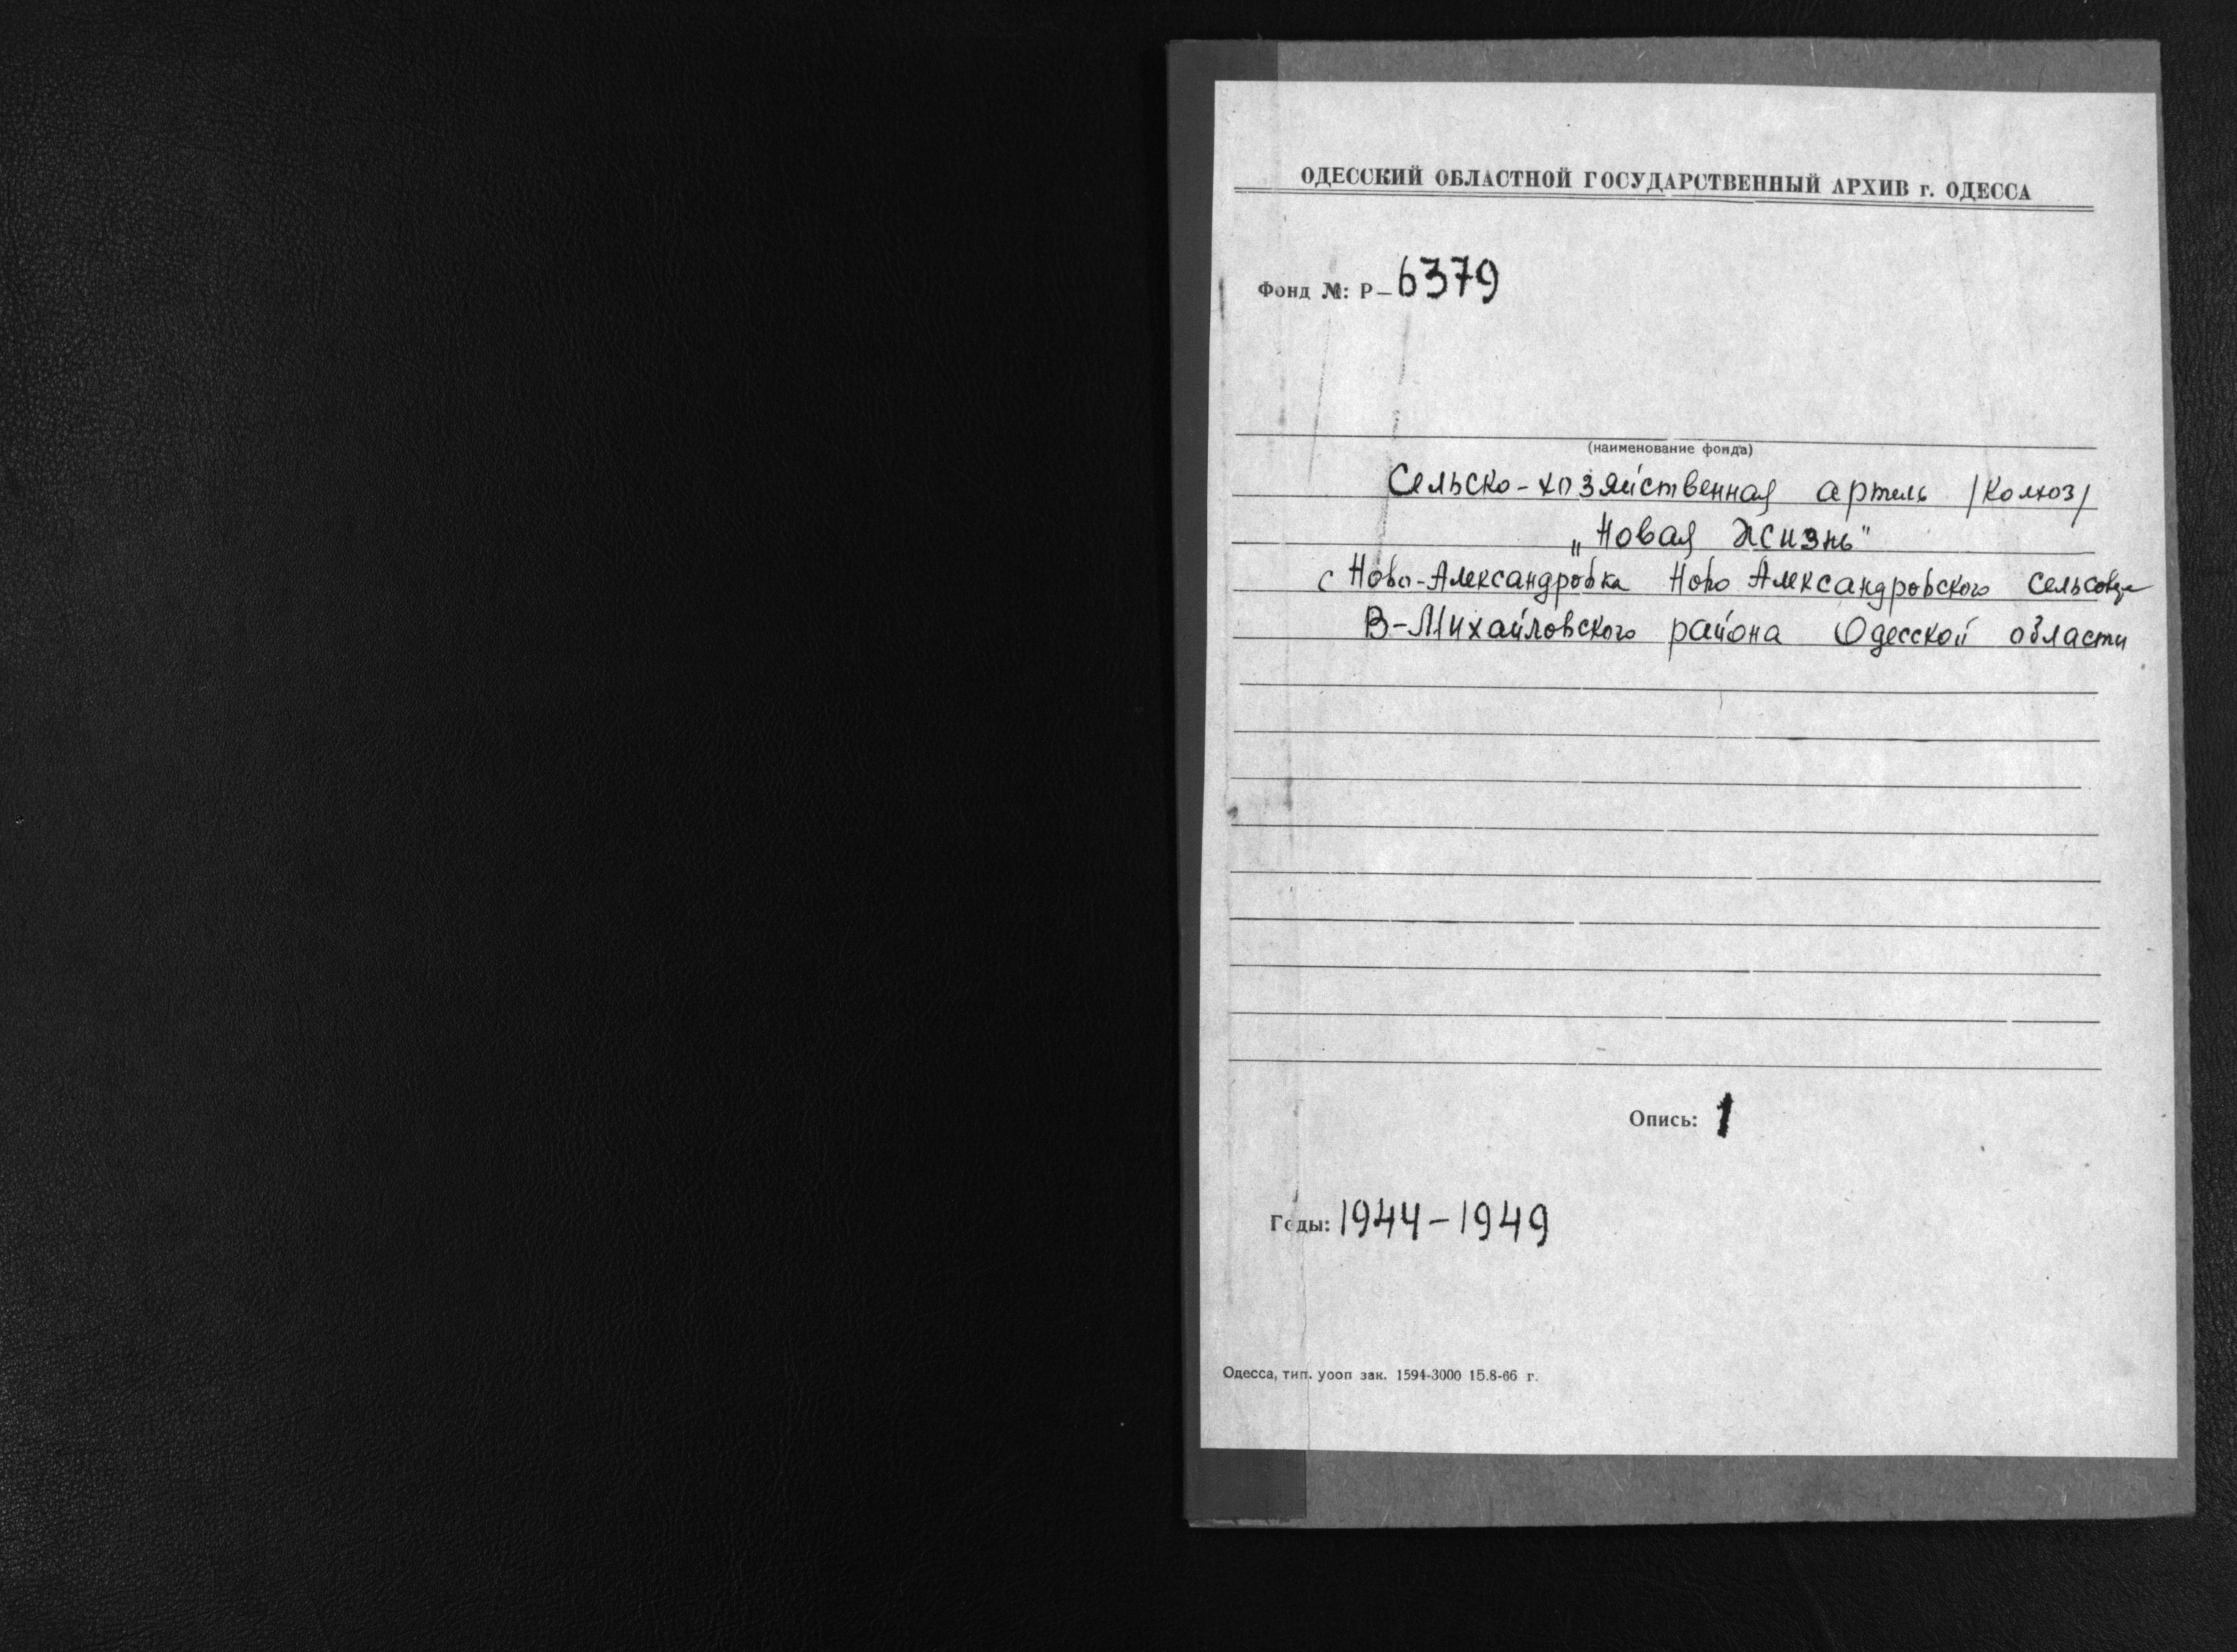 ОДЕССКИЙ ОБЛАСТНОЙ ГОСУДАРСТВЕННЫЙ АРХИВ г. ОДЕССА
Фонд №: Р-6379
(наименование фонда)
Сельско-хозяйственная артель /Колхоз/
„Новая Жизнь"
с Ново-Александровка Ново Александровского сельсовета
В-Михайловского района Одесской области
Опись: 1
Годы: 1944-1949
Одесса, тип. уооп зак. 1594-3000 15.8-66 г.